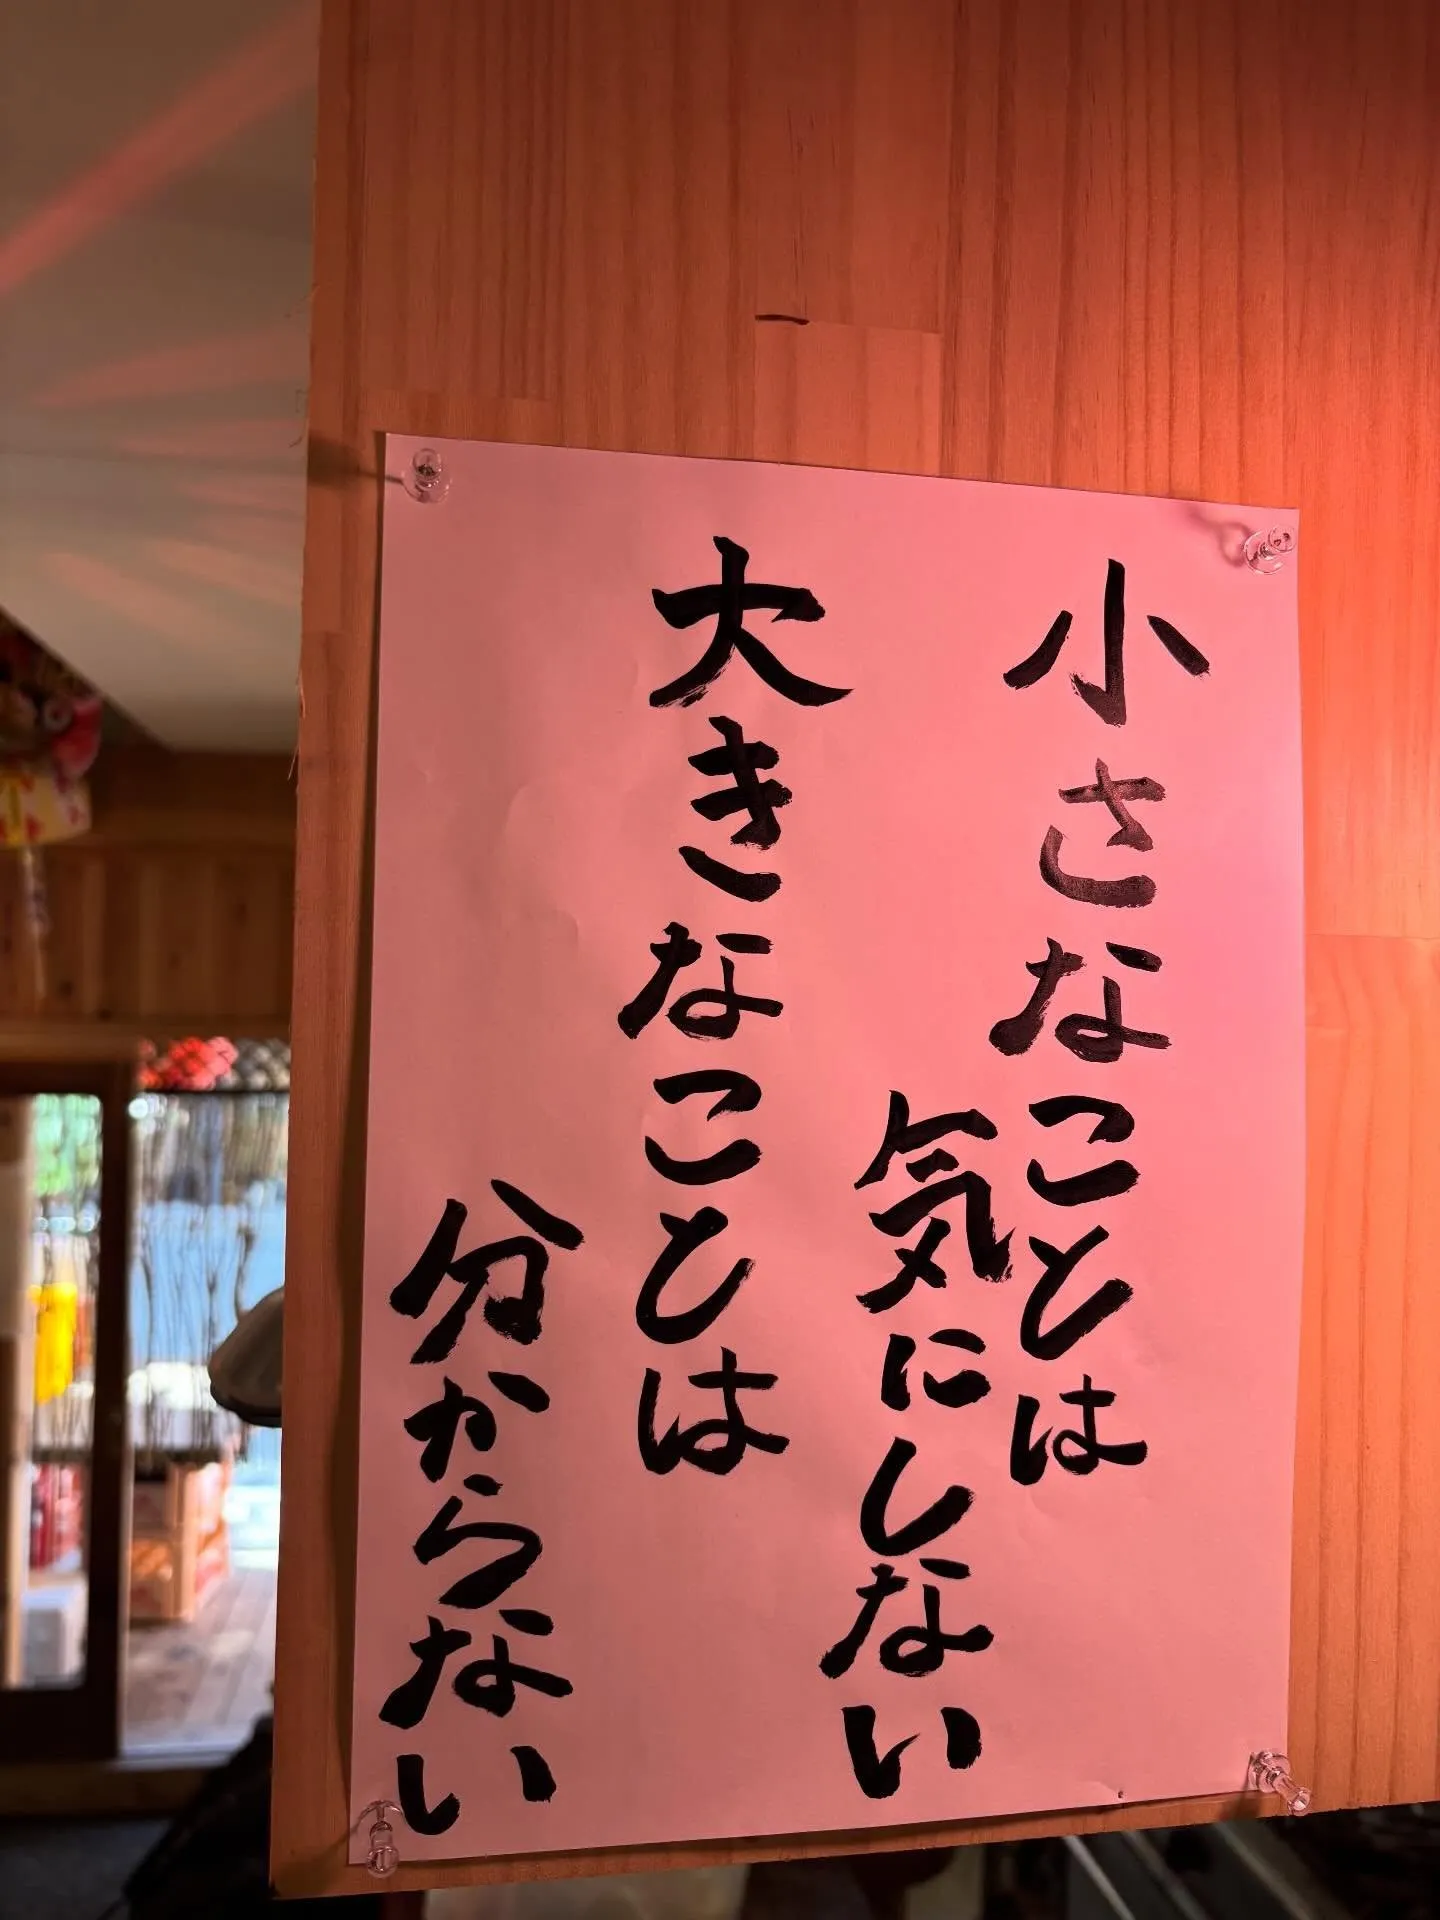 小さなことは
気にしない
大きなことは
分からない